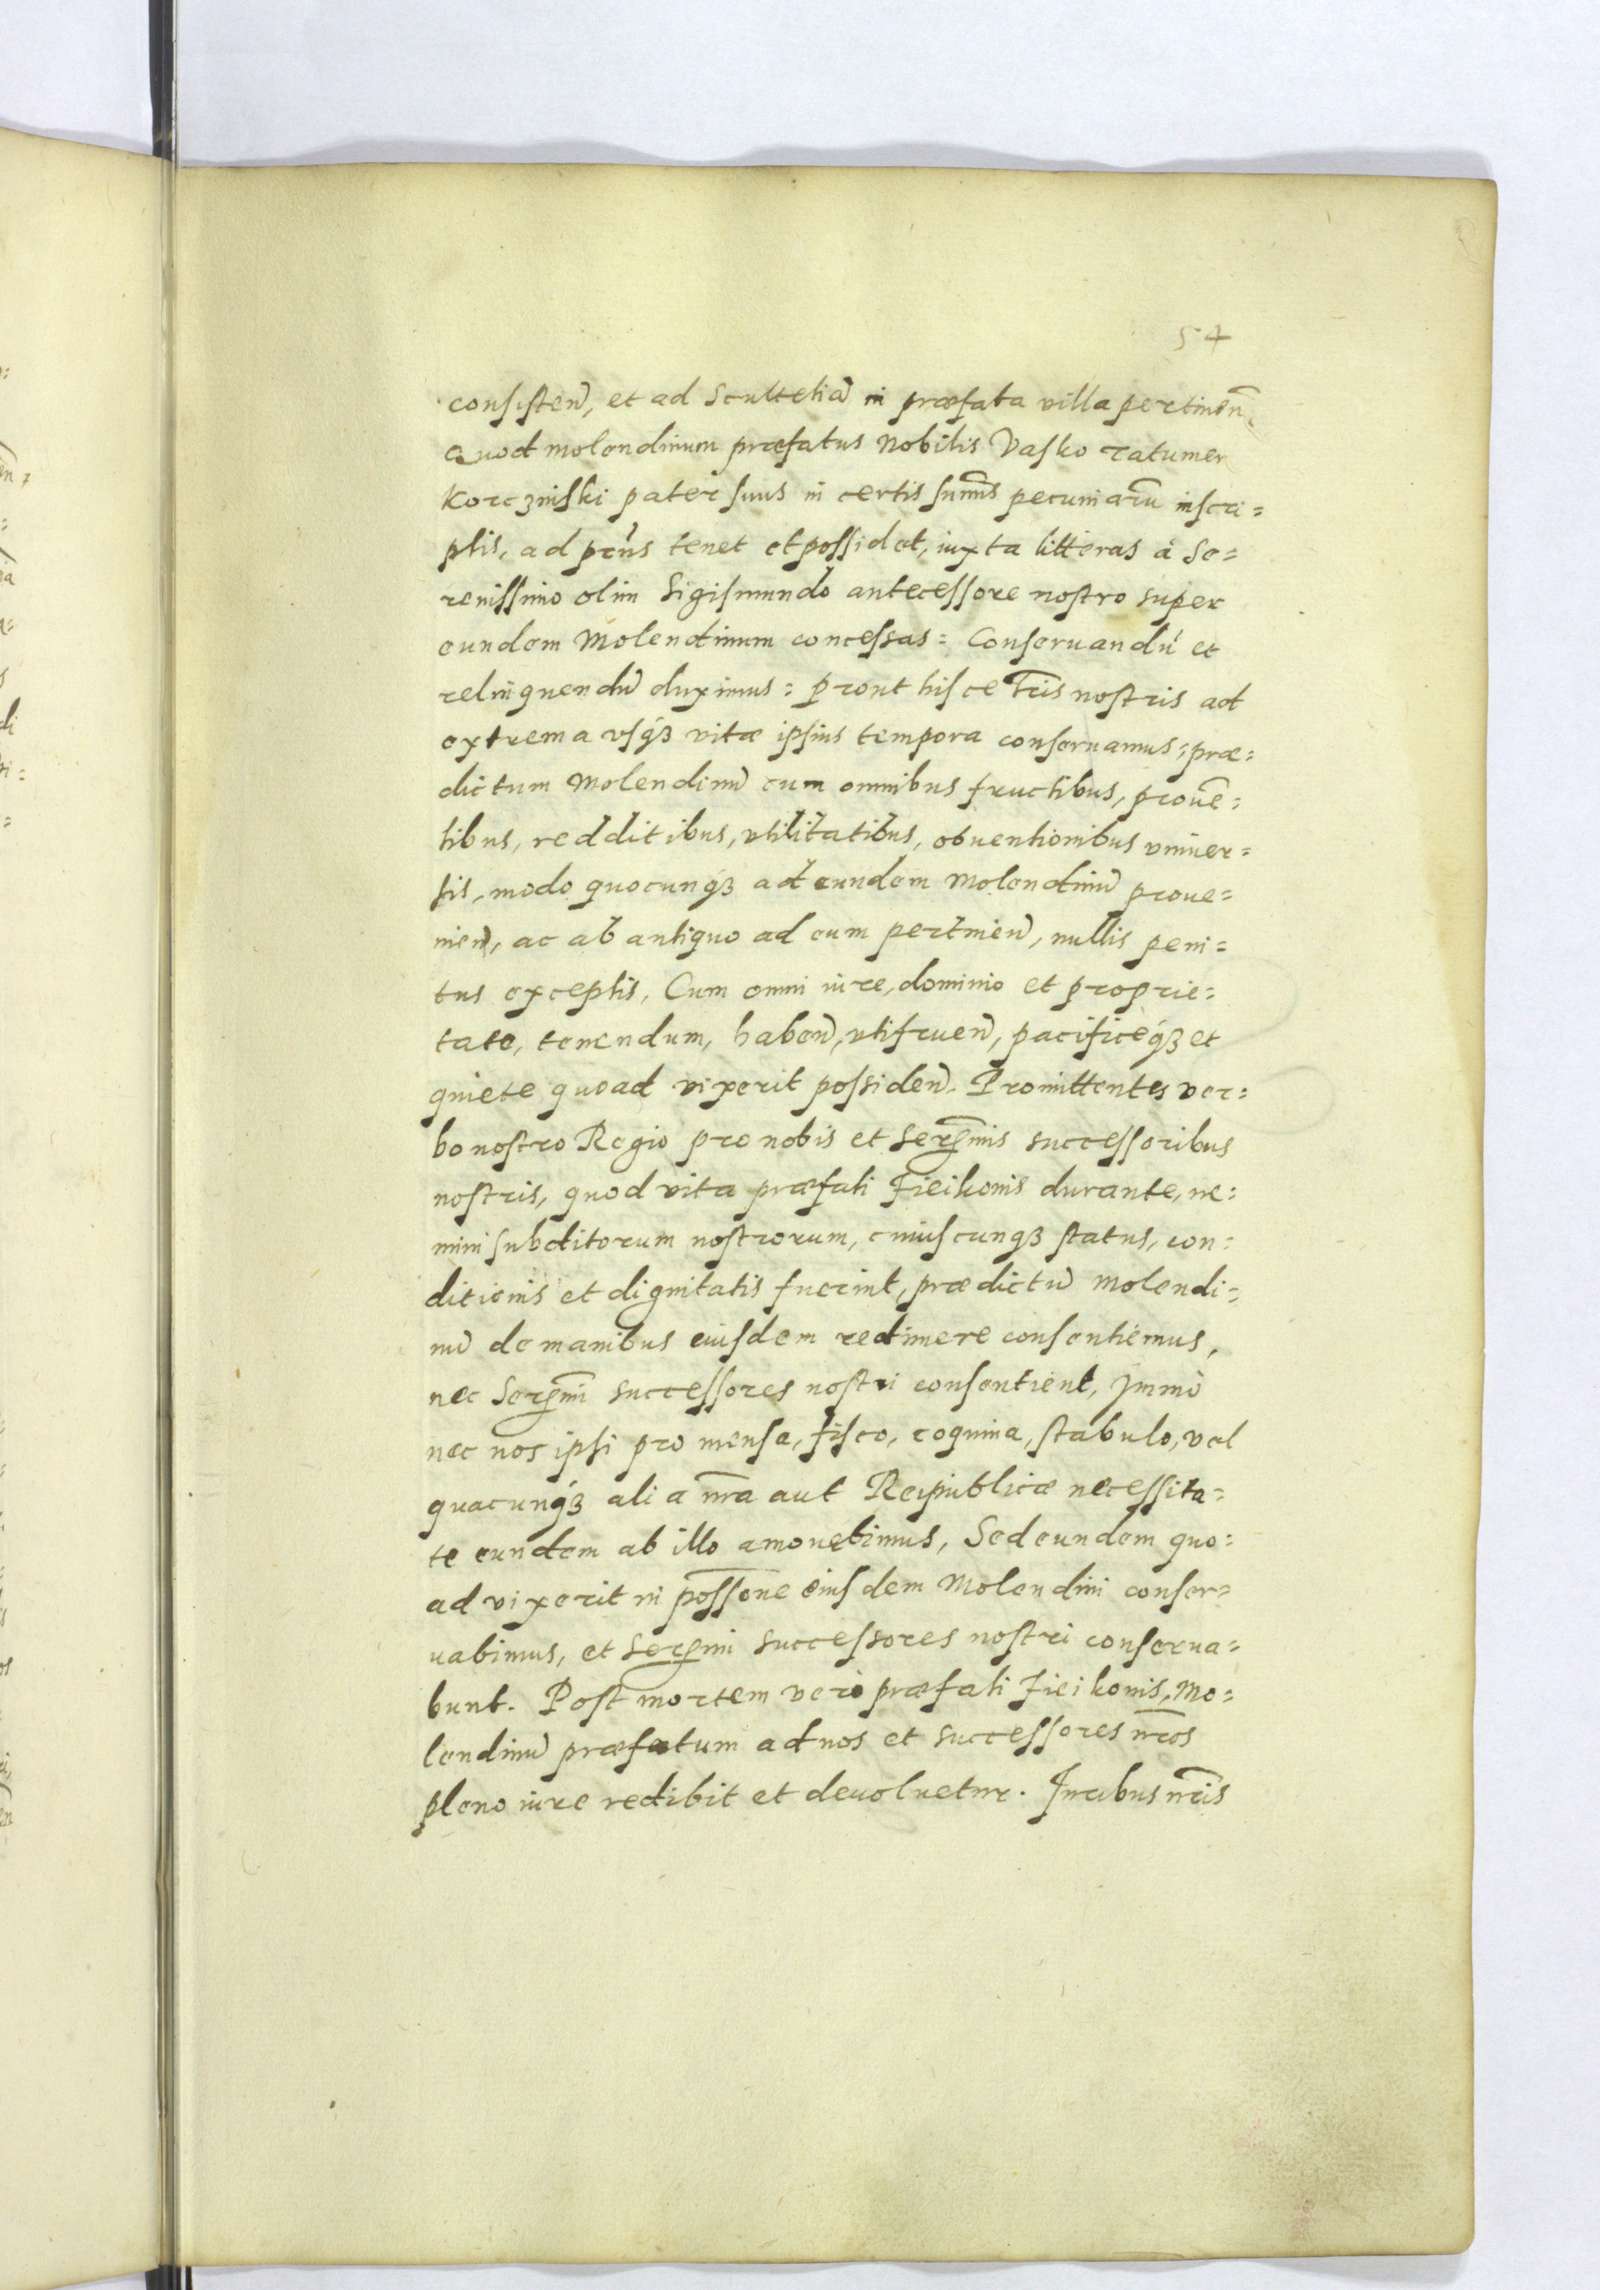 54
consisten̄, et ad Scultetiā in præfata villa pertinen̄,
Quod molendinum præfatus Nobilis Vasko Tatumer
Korczinski pater suus in certis sum̄is pecuniarū inscri=
ptis, ad pn̄s tenet et possidet, iuxta litteras á Se=
renissimo olim Sigismundo antecessore nostro super
eundem Molendinum concessas: Conseruandū et
relinquendū duximus: prout hisce lr̄is nostris ad
extrema vsq́ꝫ vitæ ipsius tempora conseruamus: præ=
dictum Molendinū cum omnibus fructibus, prouē=
tibus, redditibus, vtilitatibus, obuentionibus vniuer=
sis, modo quocunq́ꝫ ad eundem Molendinū proue=
nien̄, ac ab antiquo ad eum pertinen̄, nullis peni=
tus exceptis, Cum omni iure, dominio et proprie=
tate, tenendum, haben̄, vtifruen̄, pacificèq́ꝫ et
quiete quoad vixerit possiden̄. Promittentes ver=
bo nostro Regio pro nobis et Serenm̄is successoribus
nostris, quod vita præfati Fieikonis durante, ne=
mini subditorum nostrorum, cuiuscunqꝫ status, con=
ditionis et dignitatis fuerint, prædictū Molendi=
nū de manibus eiusdem redimere consentiemus,
nec Serenm̄i successores nostri consentient, Immò
nec nos ipsi pro mensa, fisco, coquina, stabulo, vel
quacunq́ꝫ alia nr̄a aut Reipublicæ necessita=
te eundem ab illo amouebimus, Sed eundem quo=
ad vixerit in poss̄one eiusdem Molendini conser=
uabimus, et Serenmi successores nostri conserua=
bunt. Post mortem verò præfati Fieikonis, Mo=
lendinū præfatum ad nos et successores nr̄os
pleno iure redibit et deuoluetur. Iuribus nr̄is